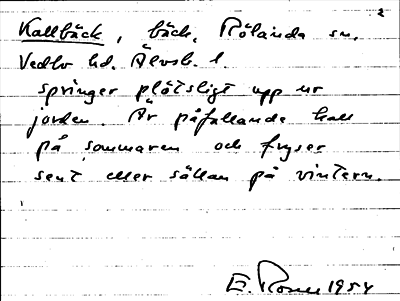 Kallbäck, bäck, Rölanda sn.
Vedbo hd. Älvsb. l.
springer plötsligt upp ur
jorden. Är påfallande kall
på sommaren och fryser
sent eller sällan på vintern.
E. 1954